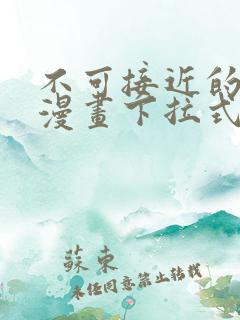 不可接近的
漫畫下拉式
蘇東
未任同意禁止轉載